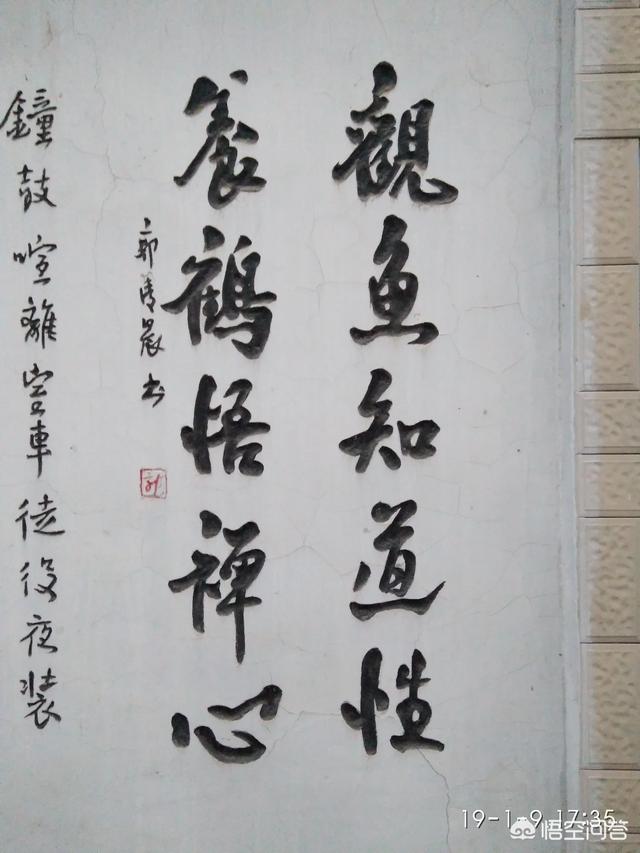 觀魚知道性
養鶴悟禪心
郭晨书
鐘鼓喧離宫車徒役夜裝
19-1-9 17:35
悟空问答